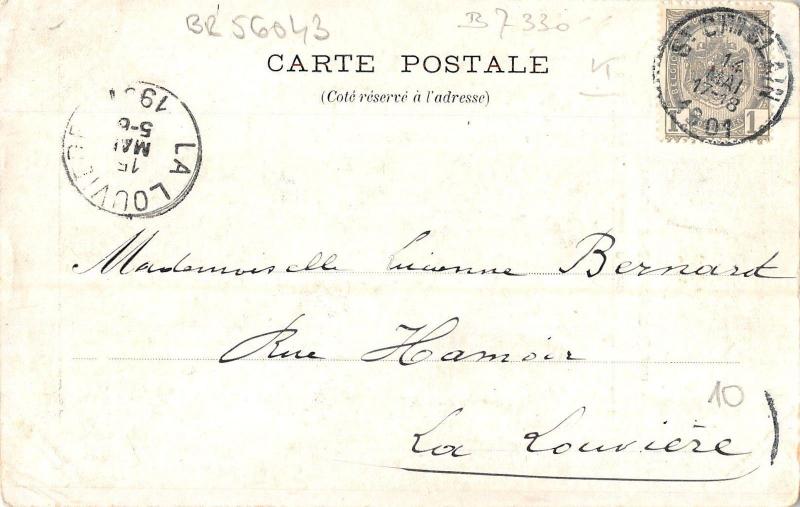 BR56043
B7330
CARTE POSTALE
(Coté réservé à l'adresse)
ST GHISLAIN
14
MAI
17-18
1901
1 1
LA LOUVIÈRE
15
MAI
5-6
1901
Mademoiselle Lucienne Bernard
Rue Hamoir
10
La Louvière